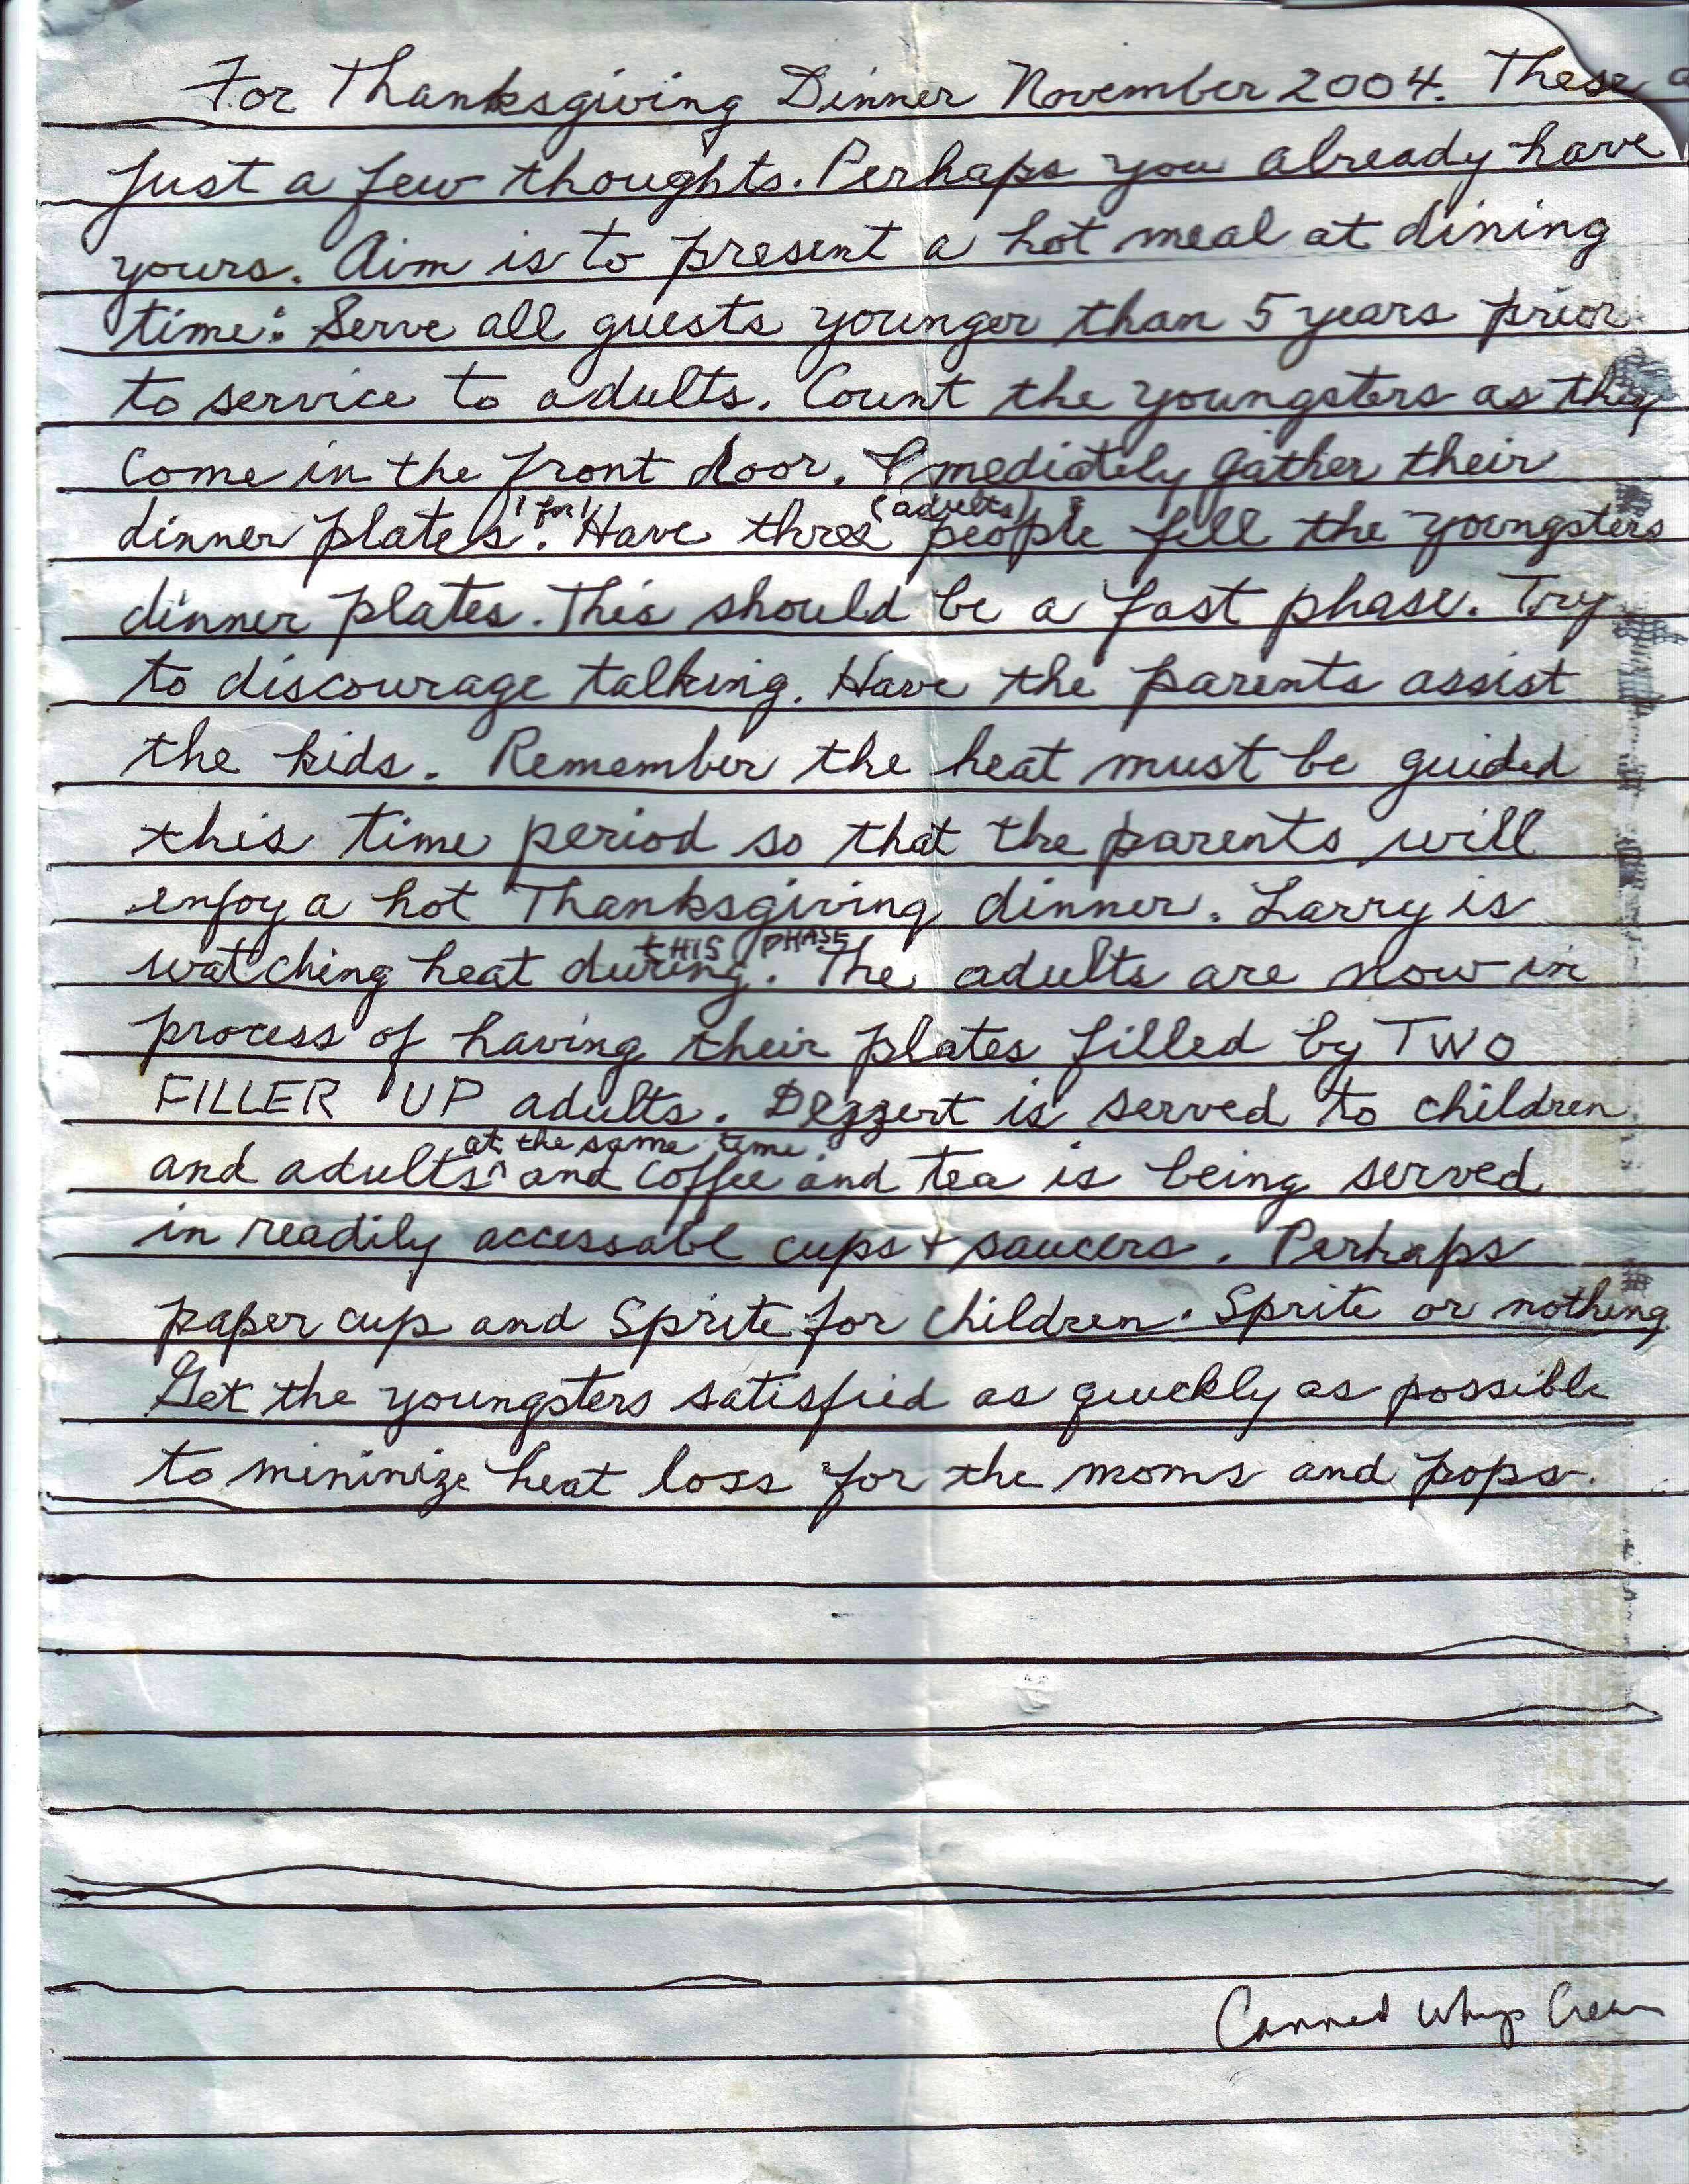 For Thanksgiving Dinner November 2004. These a
Just a few thoughts. Perhaps you already have
yours. Aim is to present a hot meal at dining
time: Serve all guests younger than 5 years prior
to service to adults. Count the youngsters as they
Come in the front door. Imediately gather their
'for' (adults)
dinner plates. Have three people fill the youngsters
dinner plates. This should be a fast phase. Try
to discourage talking. Have the parents assist
the kids. Remember the heat must be guided
this time period so that the parents will
enjoy a hot Thanksgiving dinner. Larry is
tHIS PHASE
watching heat during. The adults are now in
process of having their plates filled by TWO
FILLER UP adults. Dezzert is served to children
at the same time
and adults ^ and coffee and tea is being served
in readily accessable cups + saucers. Perhaps
paper cup and Sprite for children. Sprite or nothing
Get the youngsters satisfied as quickly as possible
to mininize heat loss for the moms and pops.
Canned Whip Cream